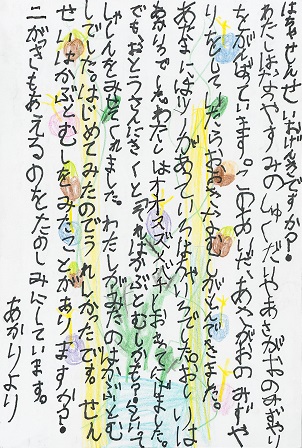 はなせんせいおげんきですか?
わたしはなつやすみのしゅくだいやあさがおのみずやり
をがんばっています。このあいだ、あさがおのみずや
りをしてたらおおきなむしがとんできました。
あたまにはツノがあっていろはちゃいろでおしりは
わたしはオオスズメバチとおもってにげました。
でもおとうさんにきくとそれはかぶとむしかも?といって
しゃしんをみせてくれました。わたしがみたのはかぶとむ
しでした。はじめてみたのでうれしかったです。せん
せいはかぶとむしをみたことがありますか?
二がっきもあえるのをたのしみにしています。
あかりより